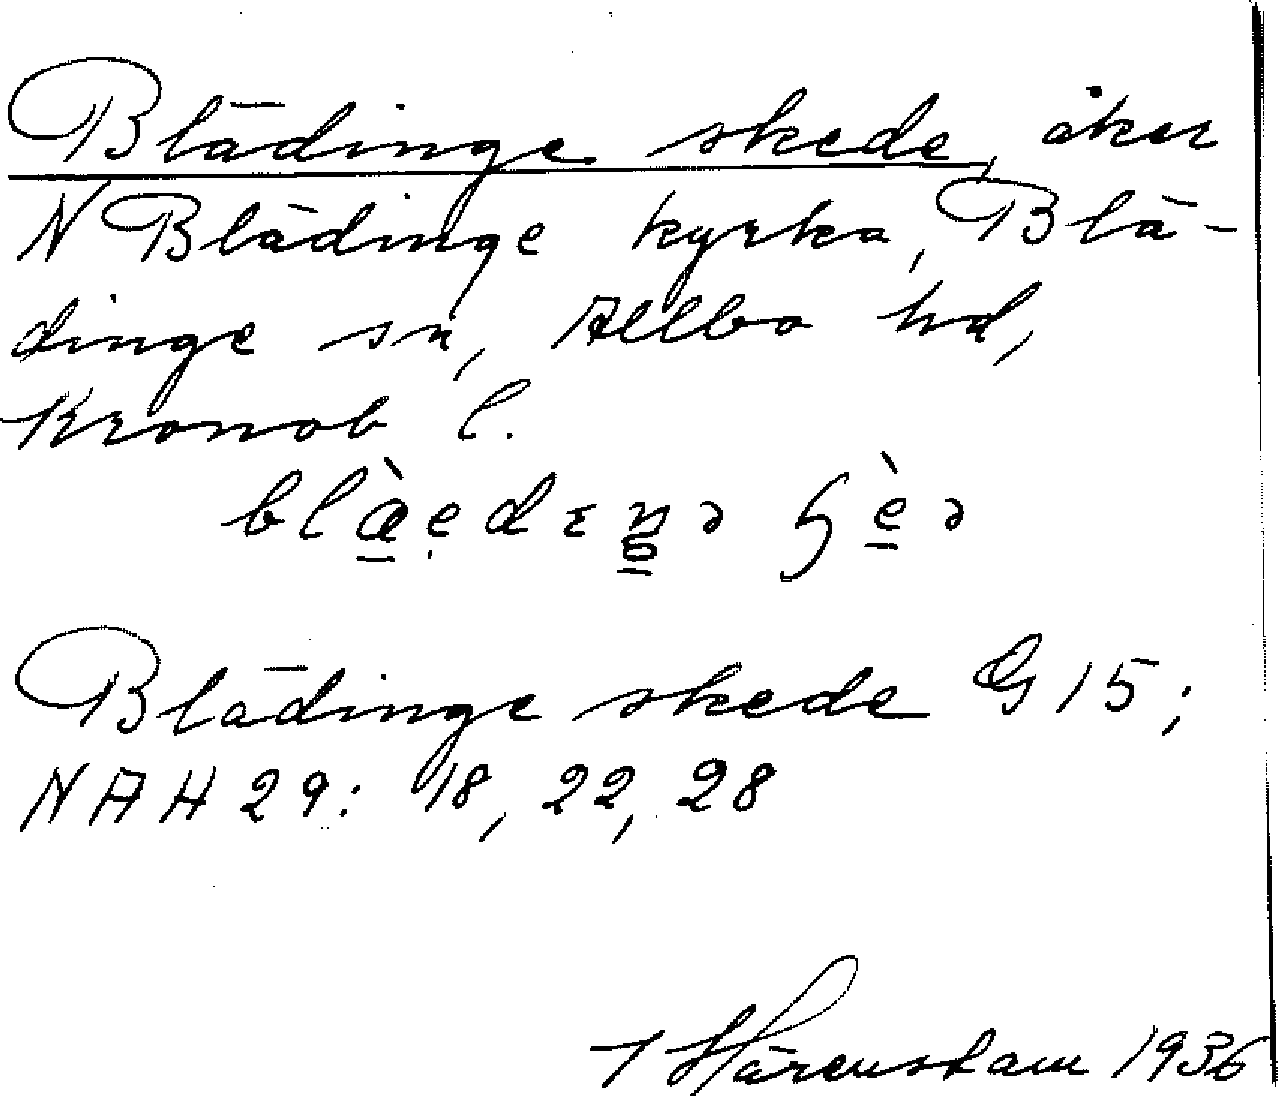 Blädinge skede, åker
N Blädinge kyrka, Blä-
dinge sn, Allbo hd,
Kronob l.
Blädinge skede G 15;
NAH 29: 18, 22, 28
Härenstam 1936